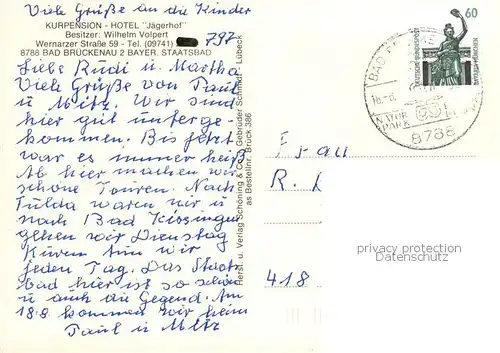 Viele Grüße an die Kinder
KURPENSION - HOTEL "Jägerhof"
Besitzer: Wilhelm Volpert
Wernarzer Straße 59 - Tel. (09741) 797
8788 BAD BRÜCKENAU 2 BAYER. STAATSBAD
Liebe Rudi u. Martha
Viele Grüße von Paul
u Mitz. Wir sind
hier gut unterge-
kommen. Bis jetzt
war es immer heiß
Ab hier machen wir
schöne Touren. Nach
Fulda waren wir u
nach Bad Kissingen
gehen wir Dienstag
Kuren tun wir
jeden Tag. Das Staats
bad hier ist so schön
u auch die Gegend. Am
18.8 kommen wir heim
Paul u Mitz
Herst. u. Verlag Schöning & Co. Gebrüder Schmidt - Lübeck
as Bestellnr. Brück 386
60
DEUTSCHE BUNDESPOST
BAD
NATUR
PARK
8788
Frau
R. L
418
privacy protection
Datenschutz